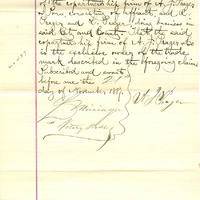 of the copartnership firm of A. J. Prager
& Son, consisting of affiant and
Prager and Prager doing business in
said City and County. That the said
copartnership firm of A. J. Prager & Son
is the exclusive owner of the trade
mark described in the foregoing claim
Subscribed and sworn to
before me the 21
day of November 188
A. J. Prager
Notary Public